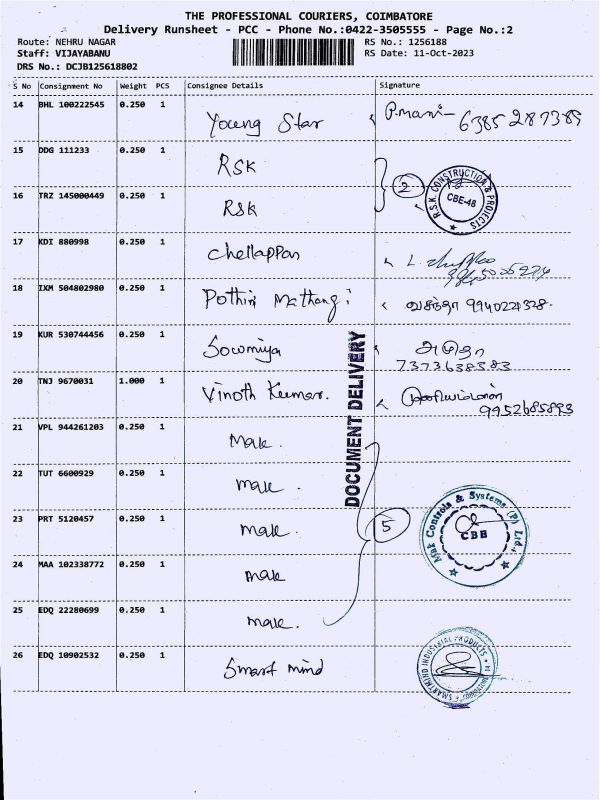 THE PROFESSIONAL COURIERS, COIMBATORE
Delivery Runsheet - PCC - Phone No.:0422-3505555 - Page No.:2
Route: NEHRU NAGAR RS No.: 1256188
Staff: VIJAYABANU RS Date: 11-Oct-2023
DRS No.: DCJB125618802
S No Consignment No Weight PCS Consignee Details Signature
14 BHL 100222545 0.250 1 Young Star P.mani - 6385287389
15 DDG 111233 0.250 1 RSK
2 R.S.K. CONSTRUCTION & PROJECTS CBE-48
16 TRZ 145000449 0.250 1 RSK
17 KDI 880998 0.250 1 Chellappan
18 IXM 504802980 0.250 1 Pothiri Mathangi
19 KUR 530744456 0.250 1 Sowmiya 7373638383
20 TNJ 9670031 1.000 1 Vinoth Kumar. 9952685893
DOCUMENT DELIVERY
21 VPL 944261203 0.250 1 Mak.
22 TUT 6600929 0.250 1 Mak.
23 PRT 5120457 0.250 1 Mak. 5 Mak Controls & Systems (P) Ltd., CBE
24 MAA 102338772 0.250 1 Mak
25 EDQ 22280699 0.250 1 Mak.
26 EDQ 10902532 0.250 1 Smart mind SMARTMIND INDUSTRIAL PRODUCTS